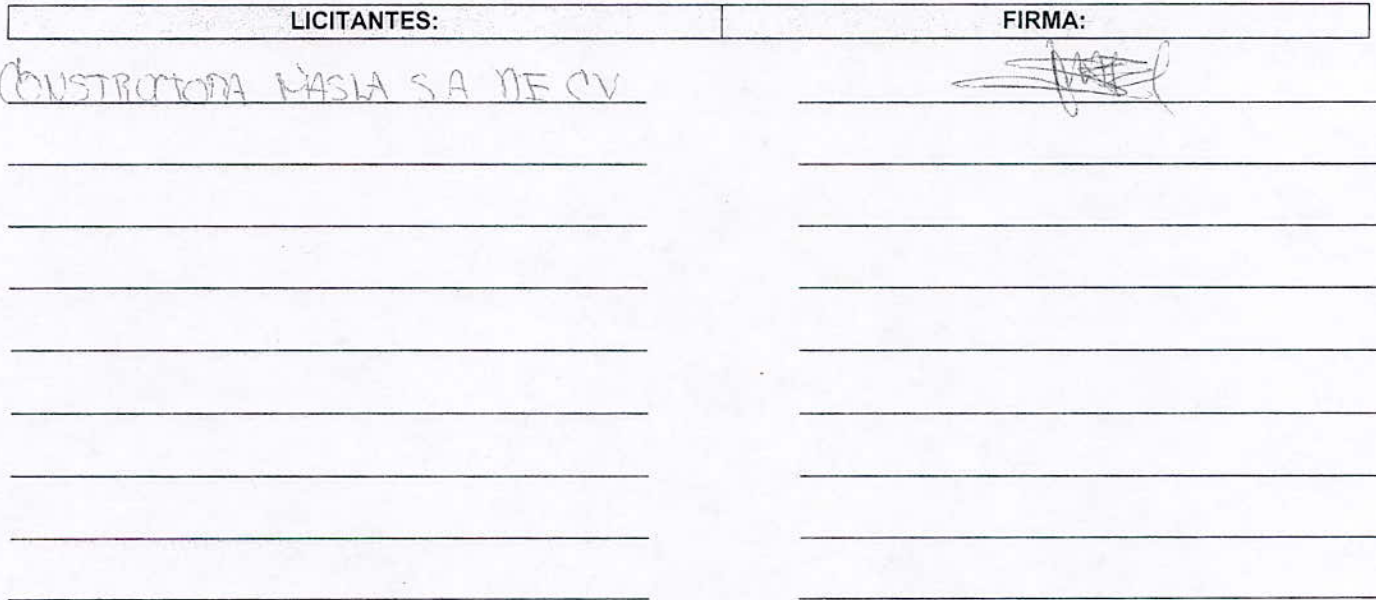 LICITANTES: FIRMA:
CONSTRUCTORA MASLA S.A DE CV